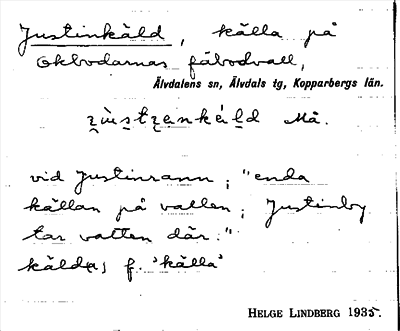 Justinkäld, källa på
Okbodarnas fäbodvall,
Älvdalens sn, Älvdals tg, Kopparbergs län.
Må.
vid Justinrann; "enda
källan på vallen; Justinby
tar vatten där."
f. 'källa'
HELGE LINDBERG 1935.